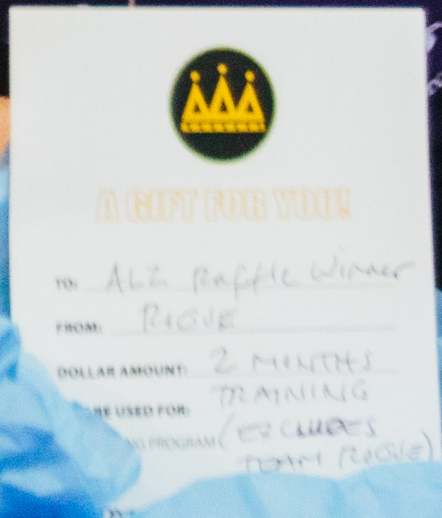 A GIFT FOR YOU!
TO: ALZ Raffle Winner
FROM: ROGUE
DOLLAR AMOUNT: 2 MONTHS
BE USED FOR: TRAINING
PROGRAM (EXCLUDES
TEAM ROGUE)